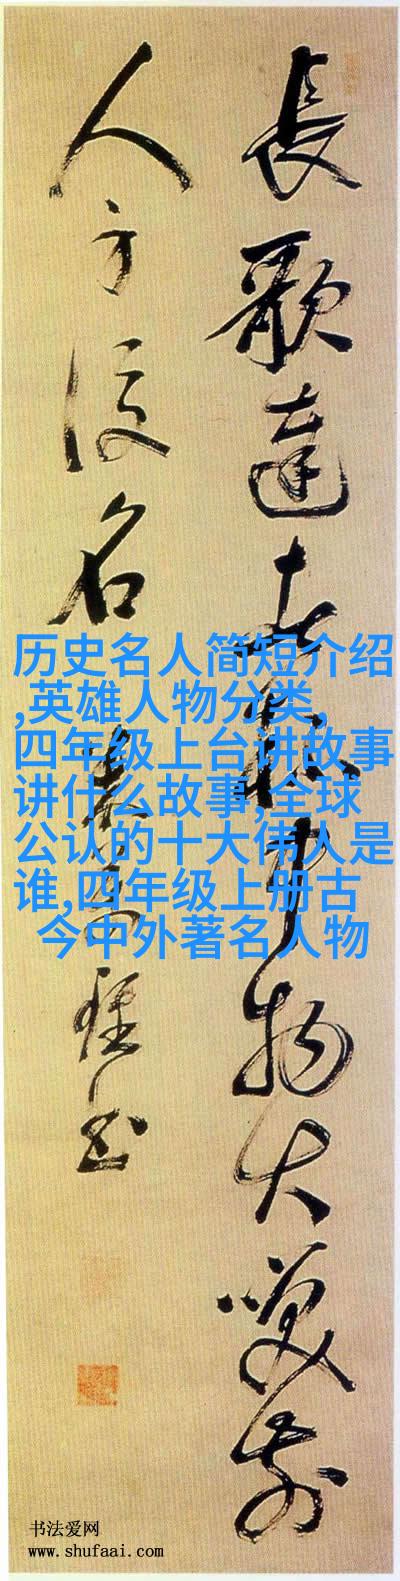 長歌達者杯中物大笑前
人身後名
历史名人简短介绍
,英雄人物分类,
四年级上台讲故事
讲什么故事,全球
公认的十大伟人是
谁,四年级上册古
今中外著名人物
书法爱网
www.shufaai.com